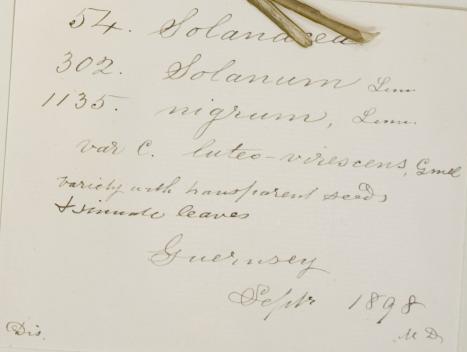 54. Solanacea
302. Solanum Linn.
1135. nigrum, Linn.
var C. luteo-virescens, Gmel
variety with transparent seeds
& sinuate leaves
Guernsey
Septr 1898
Dis. M D.